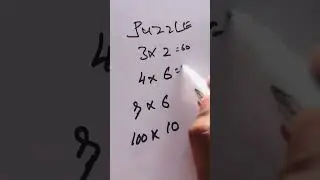 PUZZLE
3 x 2 = 60
4 x 6 =
9 x 6
100 x 10